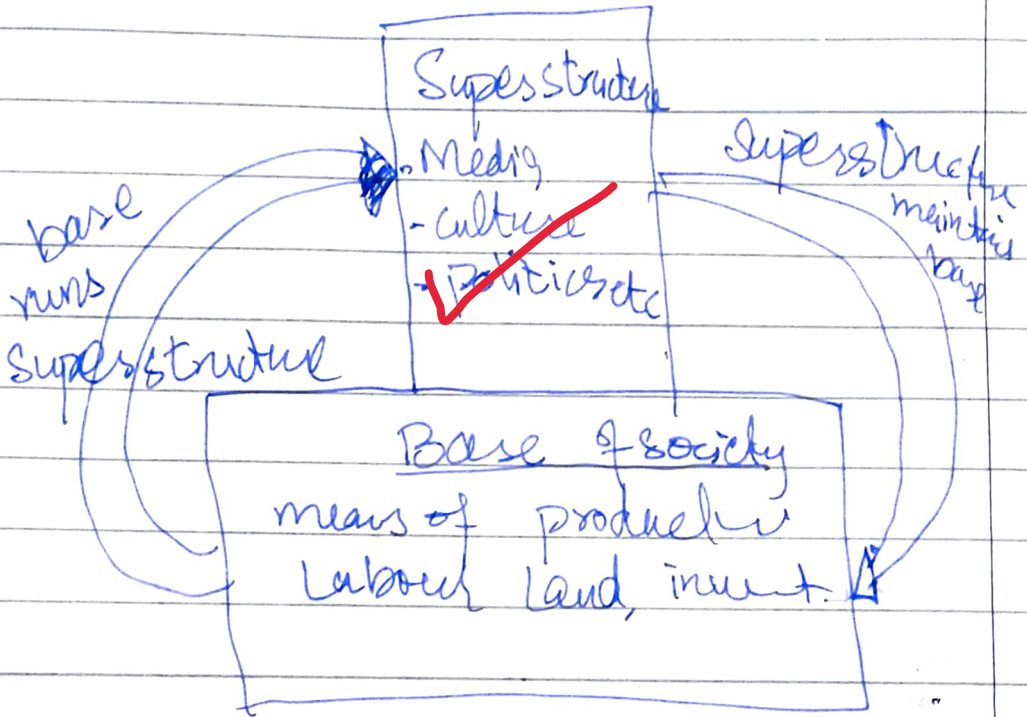 Superstructure
- Media
- Culture
- Politics etc
base
runs
Superstructure
Superstructure
maintains
base
Base of society
means of production
Labour Land,